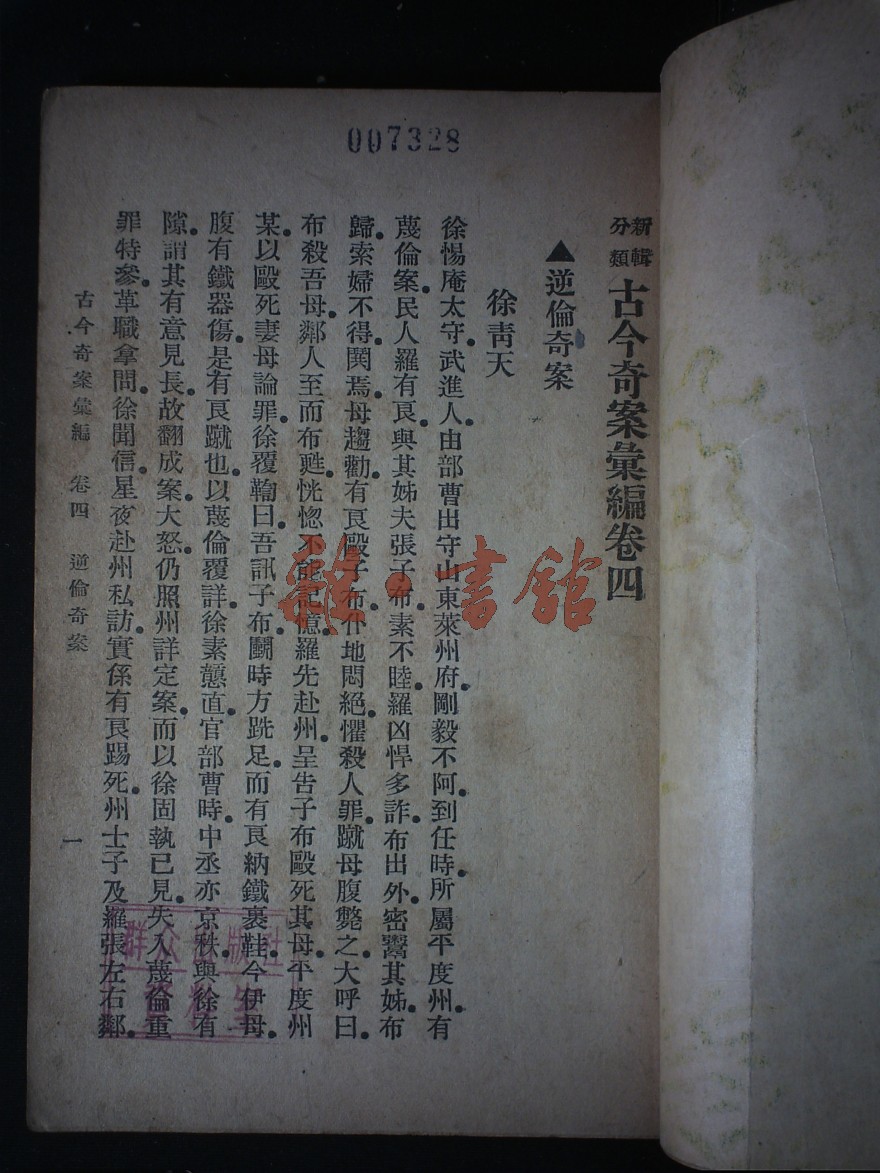 007328
新輯分類 古今奇案彙編卷四
▲逆倫奇案
徐靑天
徐惕庵太守。武進人。由部曹出守山東萊州府。剛毅不阿。到任時。所屬平度州。有
蔑倫案。民人羅有良。與其姊夫張子布。素不睦。羅凶悍多詐。布出外。密鬻其姊。布
歸。索婦不得。鬨焉。母趨勸。有良毆子布。仆地悶絕。懼殺人罪。蹴母腹斃之。大呼曰。
布殺吾母。鄰人至而布甦。恍惚不能記憶。羅先赴州。呈吿子布毆死其母。平度州
某。以毆死妻母論罪。徐覆鞫曰。吾訊子布。鬭時方跣足。而有良納鐵裹鞋。今伊母
腹有鐵器傷。是有良蹴也。以蔑倫覆詳。徐素戇直。官部曹時。中丞亦京秩。與徐有
隙。謂其有意見長。故翻成案。大怒。仍照州詳定案。而以徐固執已見。失入蔑倫重
罪特參。革職拿問。徐聞信。星夜赴州私訪。實係有良踢死。州士子及羅張左右鄰。
古今奇案彙編 卷四 逆倫奇案 一
群众出版社
雜·書館